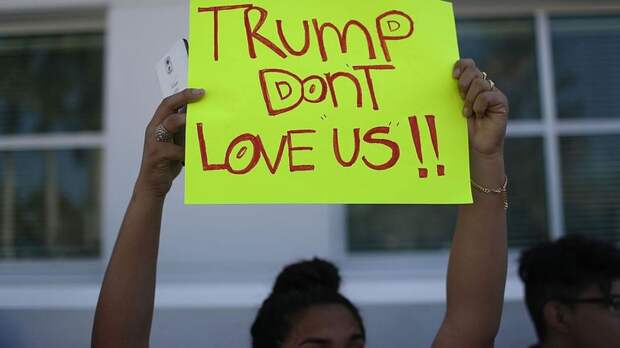 TRUMP
DON'T
LOVE US!!